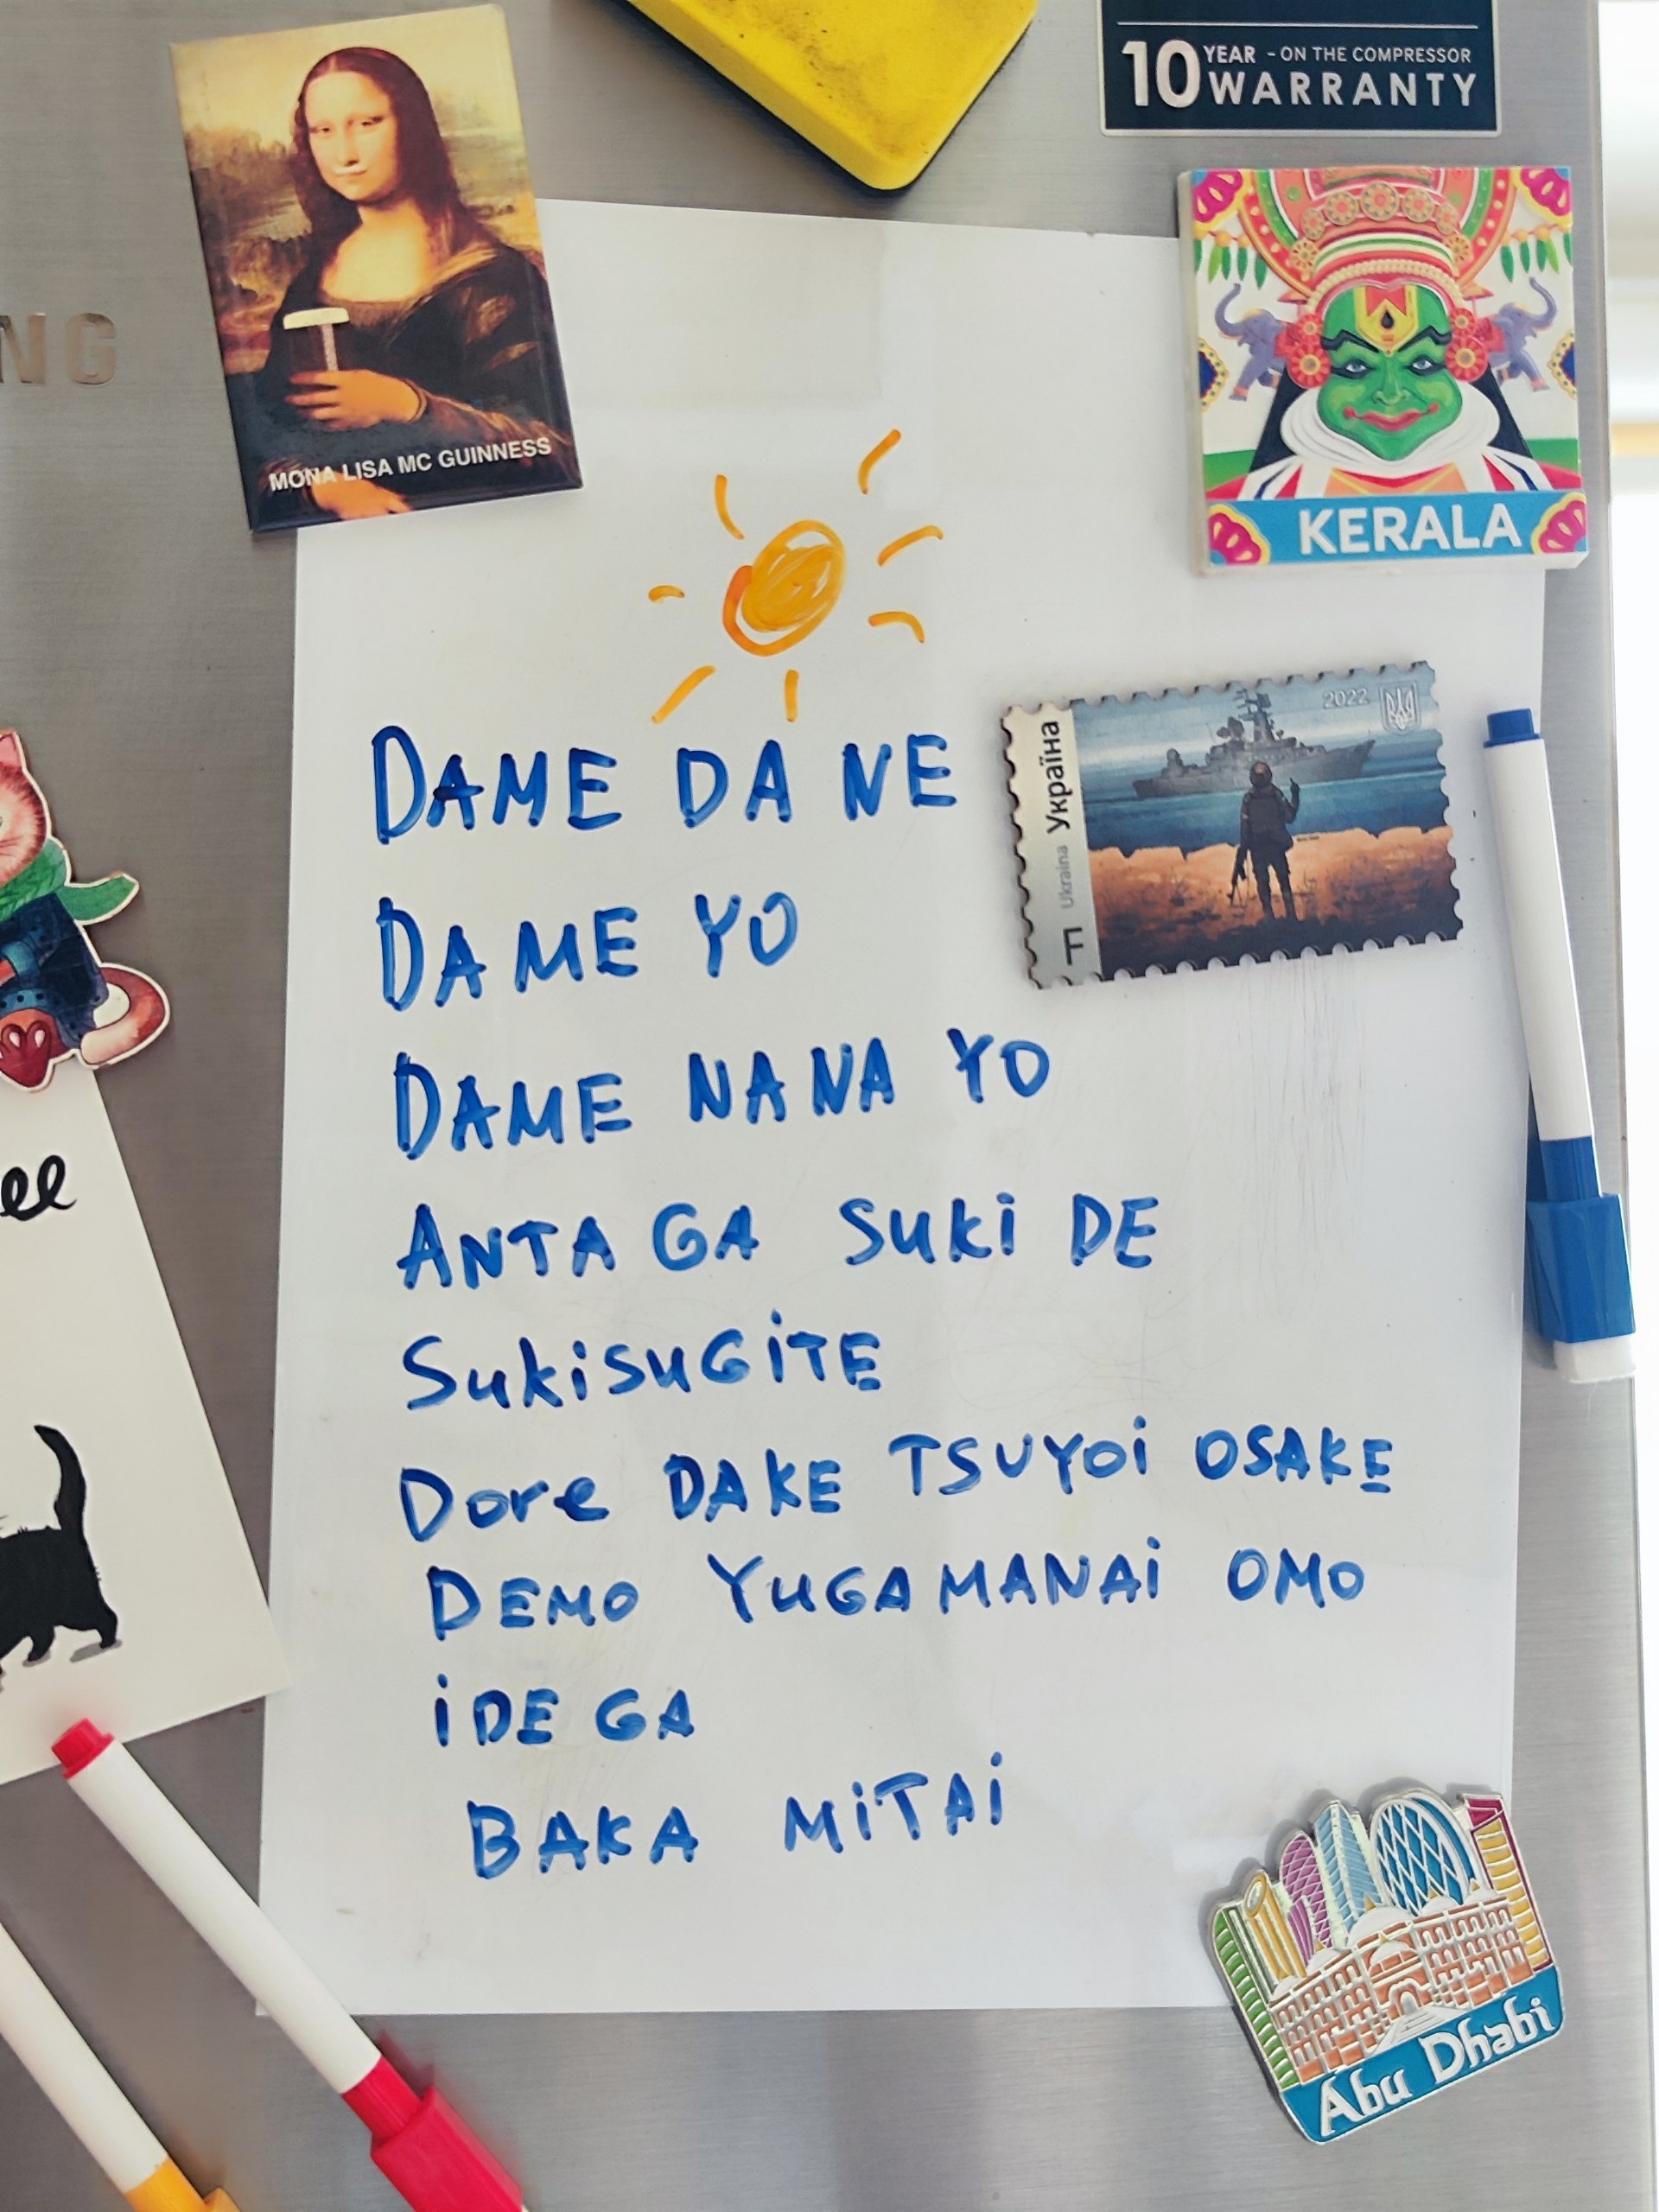 10 YEAR - ON THE COMPRESSOR
WARRANTY
NG
MONA LISA MC GUINNESS
KERALA
2022
Україна
Ukraina
F
DAME DA NE
DAME YO
DAME NANA YO
ANTA GA SUKi DE
SukiSUGiTE
Dore DAKE TSUYOi OSAKE
DEMO YUGAMANAi OMO
iDE GA
BAKA MiTAi
ee
Abu Dhabi